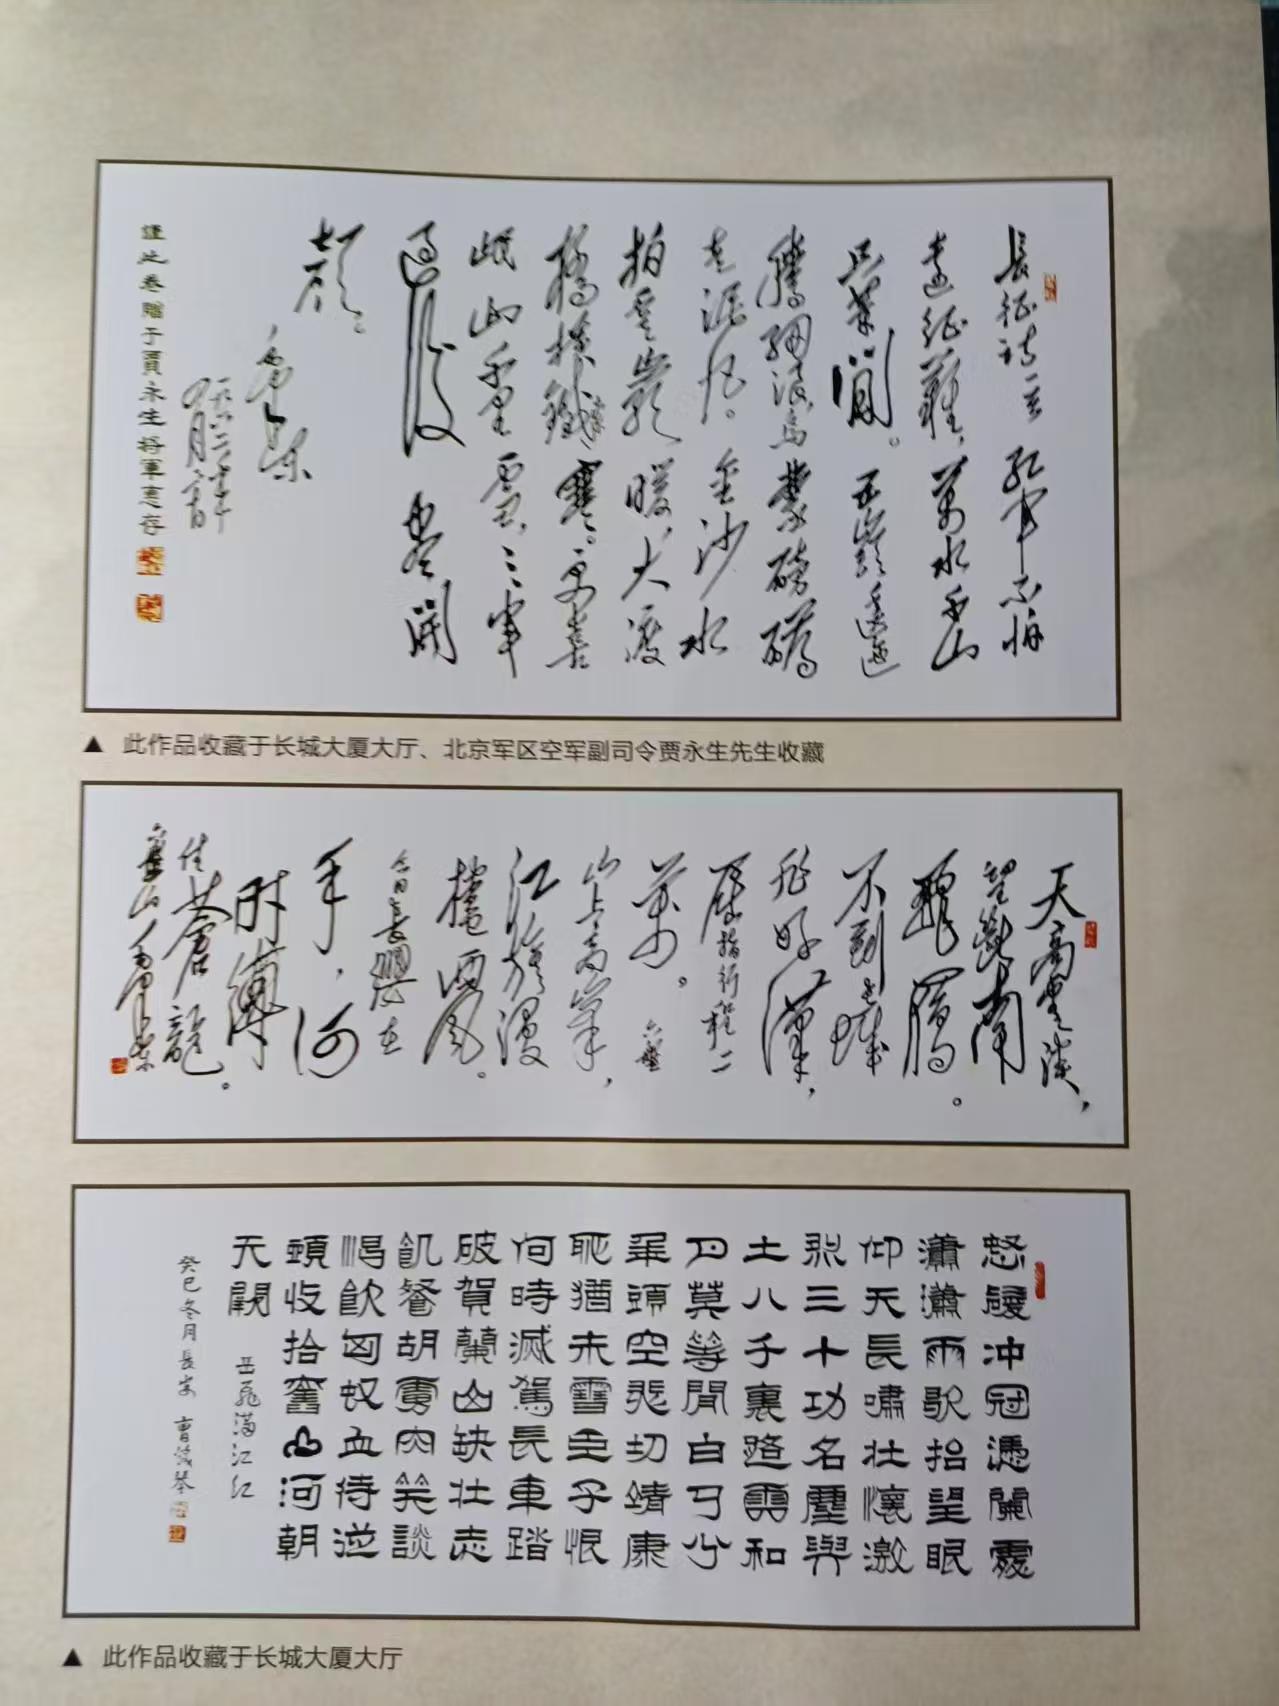 長征詩一首 紅軍不怕
遠征難，萬水千山
只等閒。五嶺逶迤
騰細浪，烏蒙磅礴
走泥丸。金沙水
拍雲崖暖，大渡
橋橫鐵索寒。更喜
岷山千里雪，三軍
過後盡開
顏。
毛澤東
一九六二年
四月二十日
謹此卷贈于賈永生將軍惠存
▲ 此作品收藏于长城大厦大厅、北京军区空军副司令贾永生先生收藏
天高雲淡，
望斷南
飛雁。
不到長城
非好漢，
屈指行程二
萬。六盤
山上高峯，
紅旗漫
捲西風。
今日長纓在
手，何
時縛
住蒼龍。
六盤山 毛澤東
怒髮沖冠憑闌處
瀟瀟雨歇抬望眼
仰天長嘯壯懷激
烈三十功名塵與
土八千里路雲和
月莫等閒白了少
年頭空悲切靖康
恥猶未雪臣子恨
何時滅駕長車踏
破賀蘭山缺壯志
飢餐胡虜肉笑談
渴飲匈奴血待從
頭收拾舊山河朝
天闕
岳飛滿江紅
癸巳冬月長安 曹俊琴
▲ 此作品收藏于长城大厦大厅